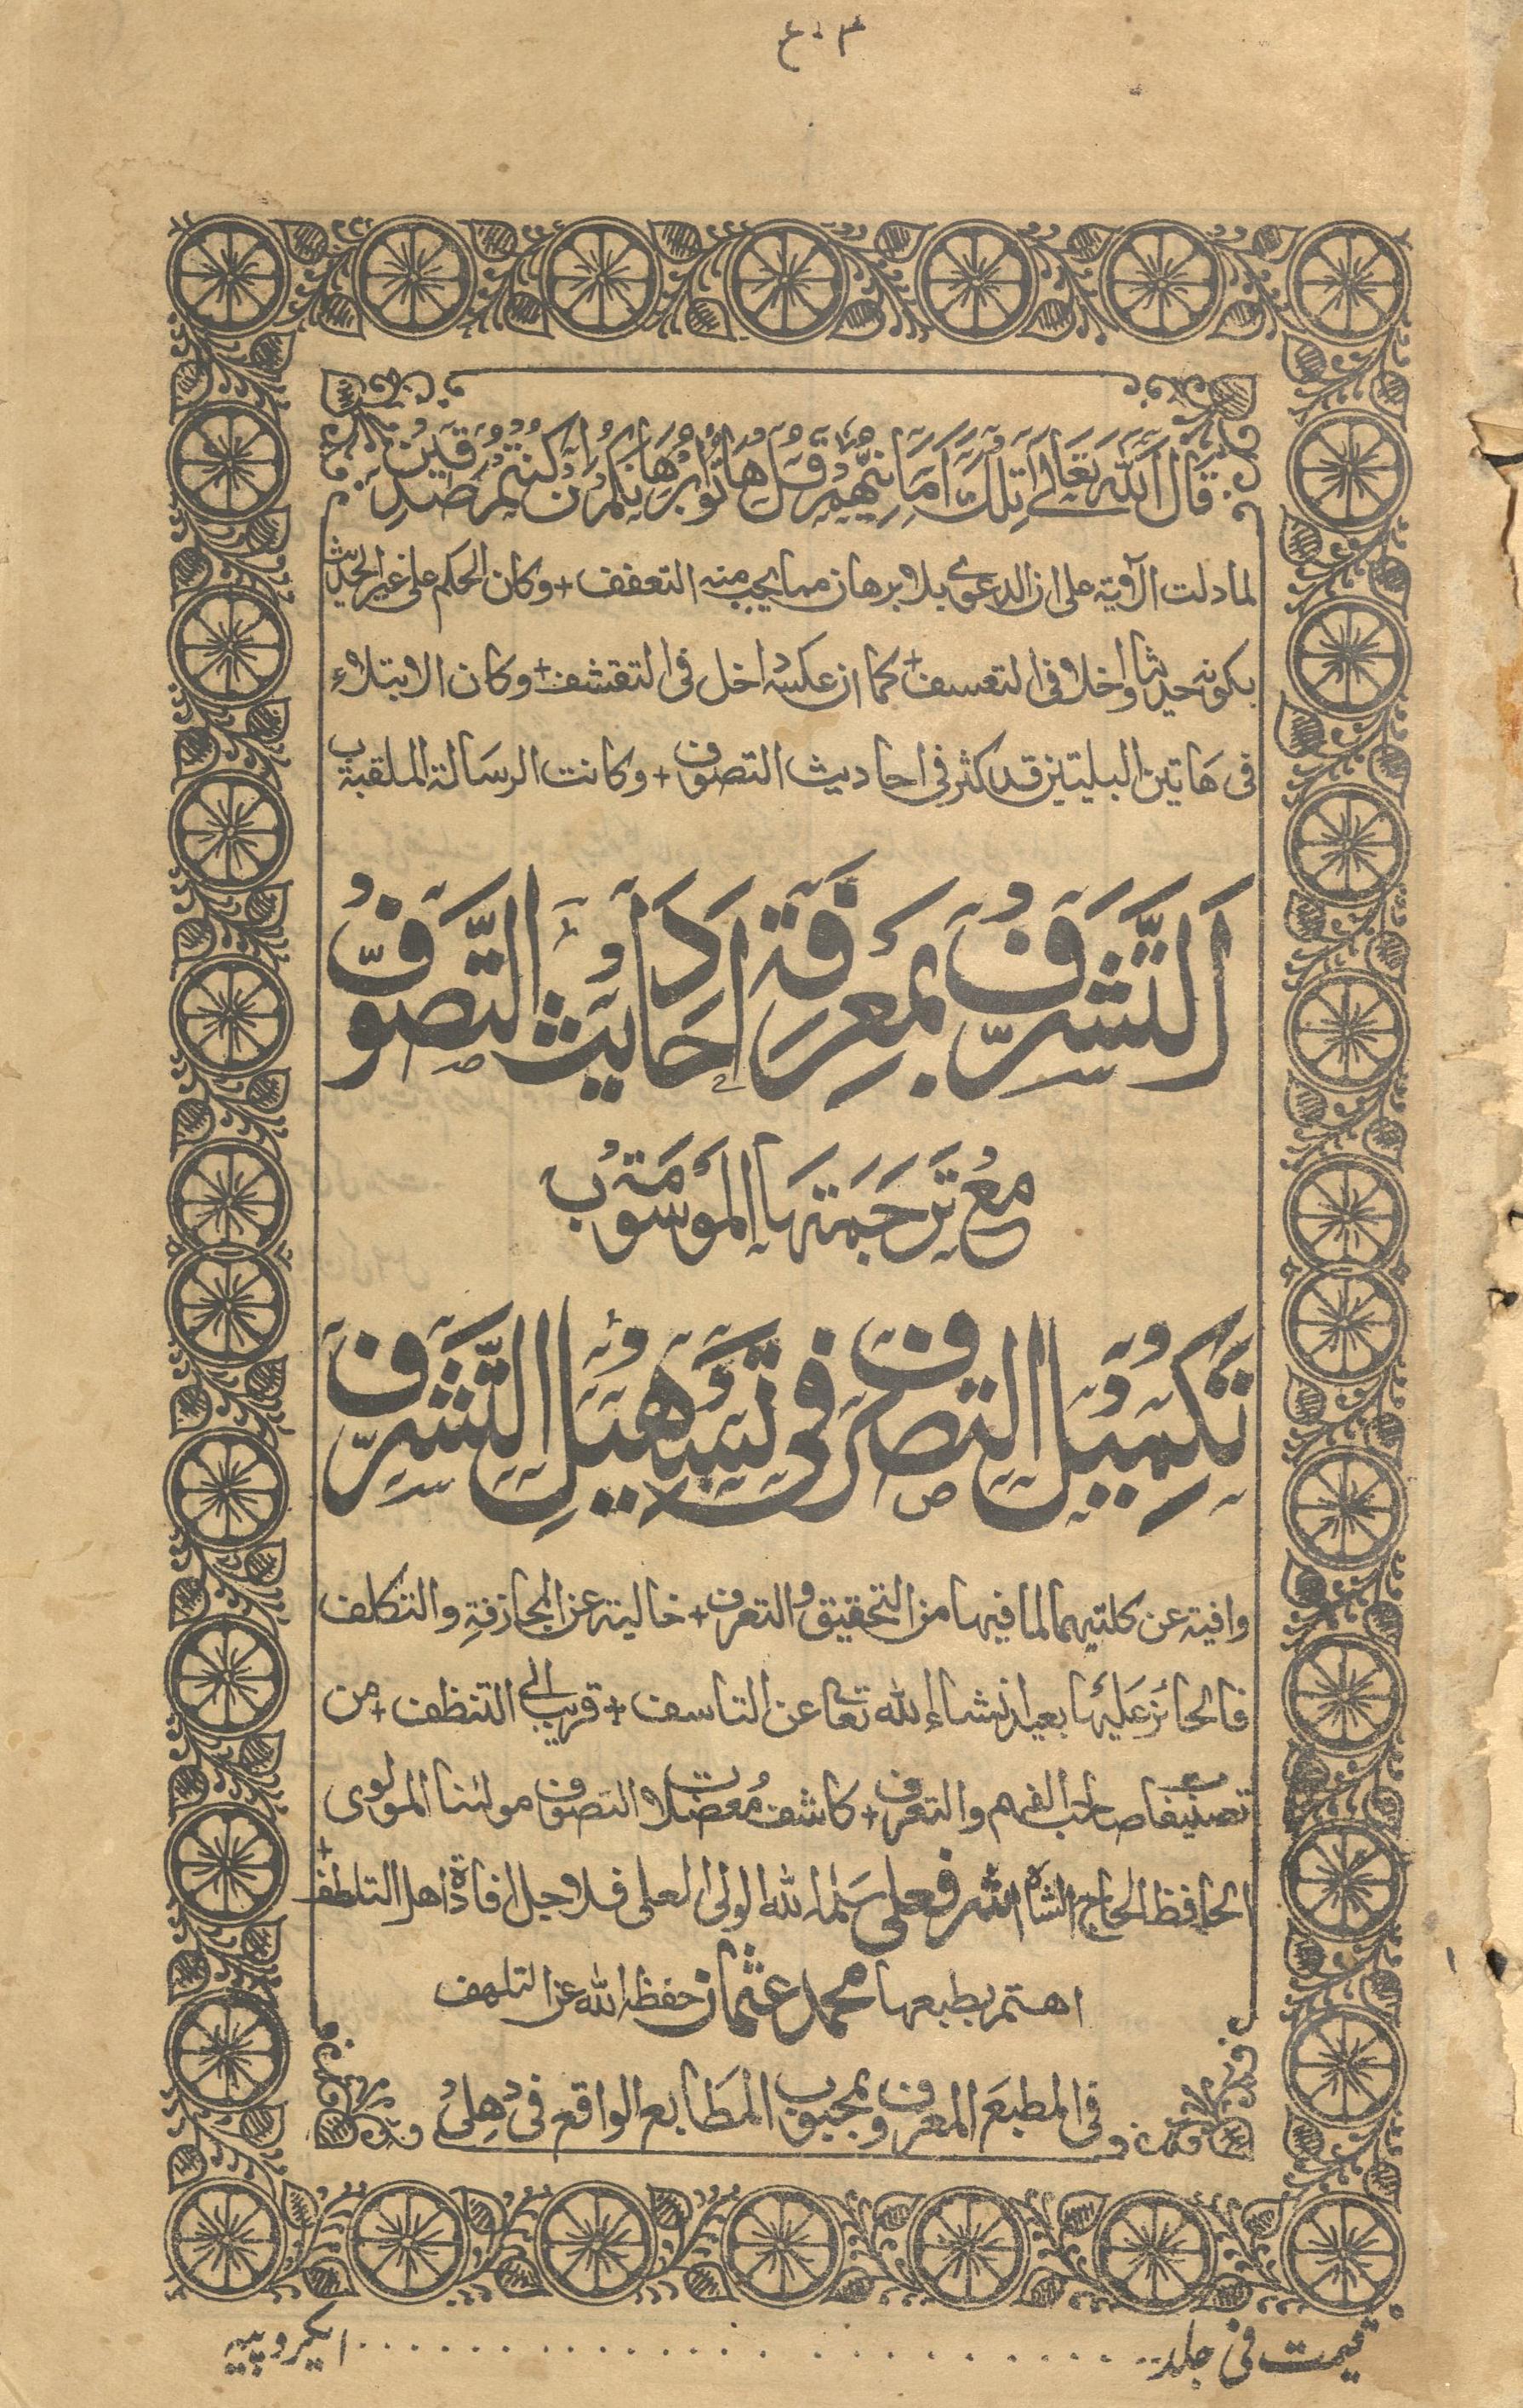 قَالَ اللهُ تَعَالٰى تِلْكَ اَمَانِيُّهُمْ قُلْ هَاتُوْا بُرْهَانَكُمْ اِنْ كُنْتُمْ صٰدِقِيْنَ
لما دلت الآية على ان الدعوى بلا برهان مما يجب منه التعفف + وكان الحكم على غير الحديث
بكونه حديثا داخلا فى التعسف + كما ان عكسه داخل فى التقشف + وكان الابتلاء
فى هاتين البليتين قد كثر فى احاديث التصوف + وكانت الرسالة الملقبة ب
اَلتَّشَرُّفُ بِمَعْرِفَةِ اَحَادِيْثِ التَّصَوُّفِ
مَعَ تَرْجَمَتِهَا الْمَوْسُوْمَةِ بِ
تَكْمِيْلُ التَّصَرُّفِ فِىْ تَسْهِيْلِ التَّشَرُّفِ
وافية عن كلتيهما لما فيها من التحقيق والتعرف + خالية عن المجازفة والتكلف
فالحائز عليها بعيد انشاء الله تعالى عن التاسف + قريب الى التنظف + من
تصنيف صاحب الفهم والتعرف + كاشف معضلات التصوف مولٰنا المولوى
الحافظ الحاج الشاه اشرف على سلمه الله الولى العلى فلاجل افادة اهل التلطف +
اهتم بطبعها محمد عثمان حفظه الله عن التلهف
فى المطبع المعروف بمحبوب المطابع الواقع فى دهلى
قیمت فی جلد ........ ایکروپیہ